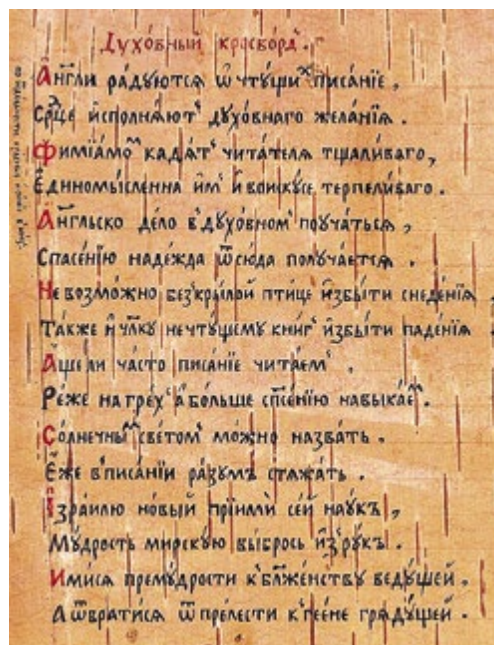 Духо́вный кросво́рд.
А́нг̃ли ра́дуются ѿ чту́щих писа́нїе,
Ср̃це и҆сполня́ют дꙋхо́внаго жела́нїя.
Фимїа́мом кадя́т чита́теля тщали́ваго,
Е҆диномы́сленна и҆м и҆ во искꙋ́се терпели́ваго.
А́нг̃льско де́ло в дꙋхо́вном поꙋча́ться,
Спасе́нїю наде́жда ѿсю́да полꙋча́ется.
Не возмо́жно без кры́лой пти́це и҆збы́ти снеде́нїя
Та́кже и҆ чл̃кꙋ не чтꙋ́щемꙋ кни́г и҆збы́ти паде́нїя.
А́ще ли ча́сто писа́нїе чита́ем,
Ре́же на гре́х а҆ бо́льше сп̃се́нїю навыка́ем.
Со́лнечным све́том мо́жно назва́ть.
Е҆́же в писа́нїи ра́зꙋмъ стяжа́ть.
І҆зра́илю но́вый прїими́ се́й наꙋ́къ,
Мꙋ́дрость мирскꙋ́ю вы́брось и҆з рꙋ́къ.
И҆ми́ся премꙋ́дрости к бл̃же́нствꙋ ведꙋ́щей.
А ѿврати́ся ѿ пре́лести к гее́не грядꙋ́щей.